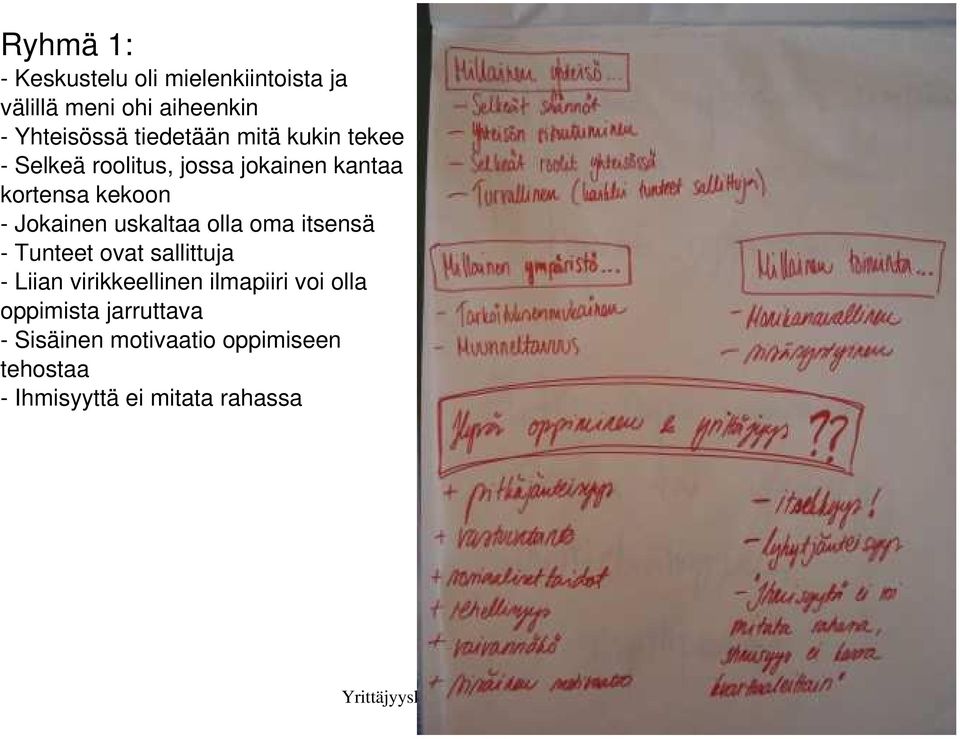 Ryhmä 1:
- Keskustelu oli mielenkiintoista ja
välillä meni ohi aiheenkin
- Yhteisössä tiedetään mitä kukin tekee
- Selkeä roolitus, jossa jokainen kantaa
kortensa kekoon
- Jokainen uskaltaa olla oma itsensä
- Tunteet ovat sallittuja
- Liian virikkeellinen ilmapiiri voi olla
oppimista jarruttava
- Sisäinen motivaatio oppimiseen
tehostaa
- Ihmisyyttä ei mitata rahassa
Millainen yhteisö...
- Selkeät säännöt
- Yhteisön sitoutuminen
- Selkeät roolit yhteisössä
- Turvallinen (kaikki tunteet sallittuja)
Millainen ympäristö...
- Tarkoituksenmukainen
- Muunneltavuus
Millainen toiminta...
- Monikanavallinen
- sisäsyntyinen
Hyvä oppiminen & yrittäjyys ??
+ pitkäjänteisyys
+ vastuuntunto
+ sosiaaliset taidot
+ rehellisyys
+ vaivannäkö
+ sisäinen motivaatio
- itsekkyys!
- lyhytjänteisyys
- "Ihmisyyttä ei voi
mitata rahassa,
ihmisyys ei kasva
kvartaaleittain"